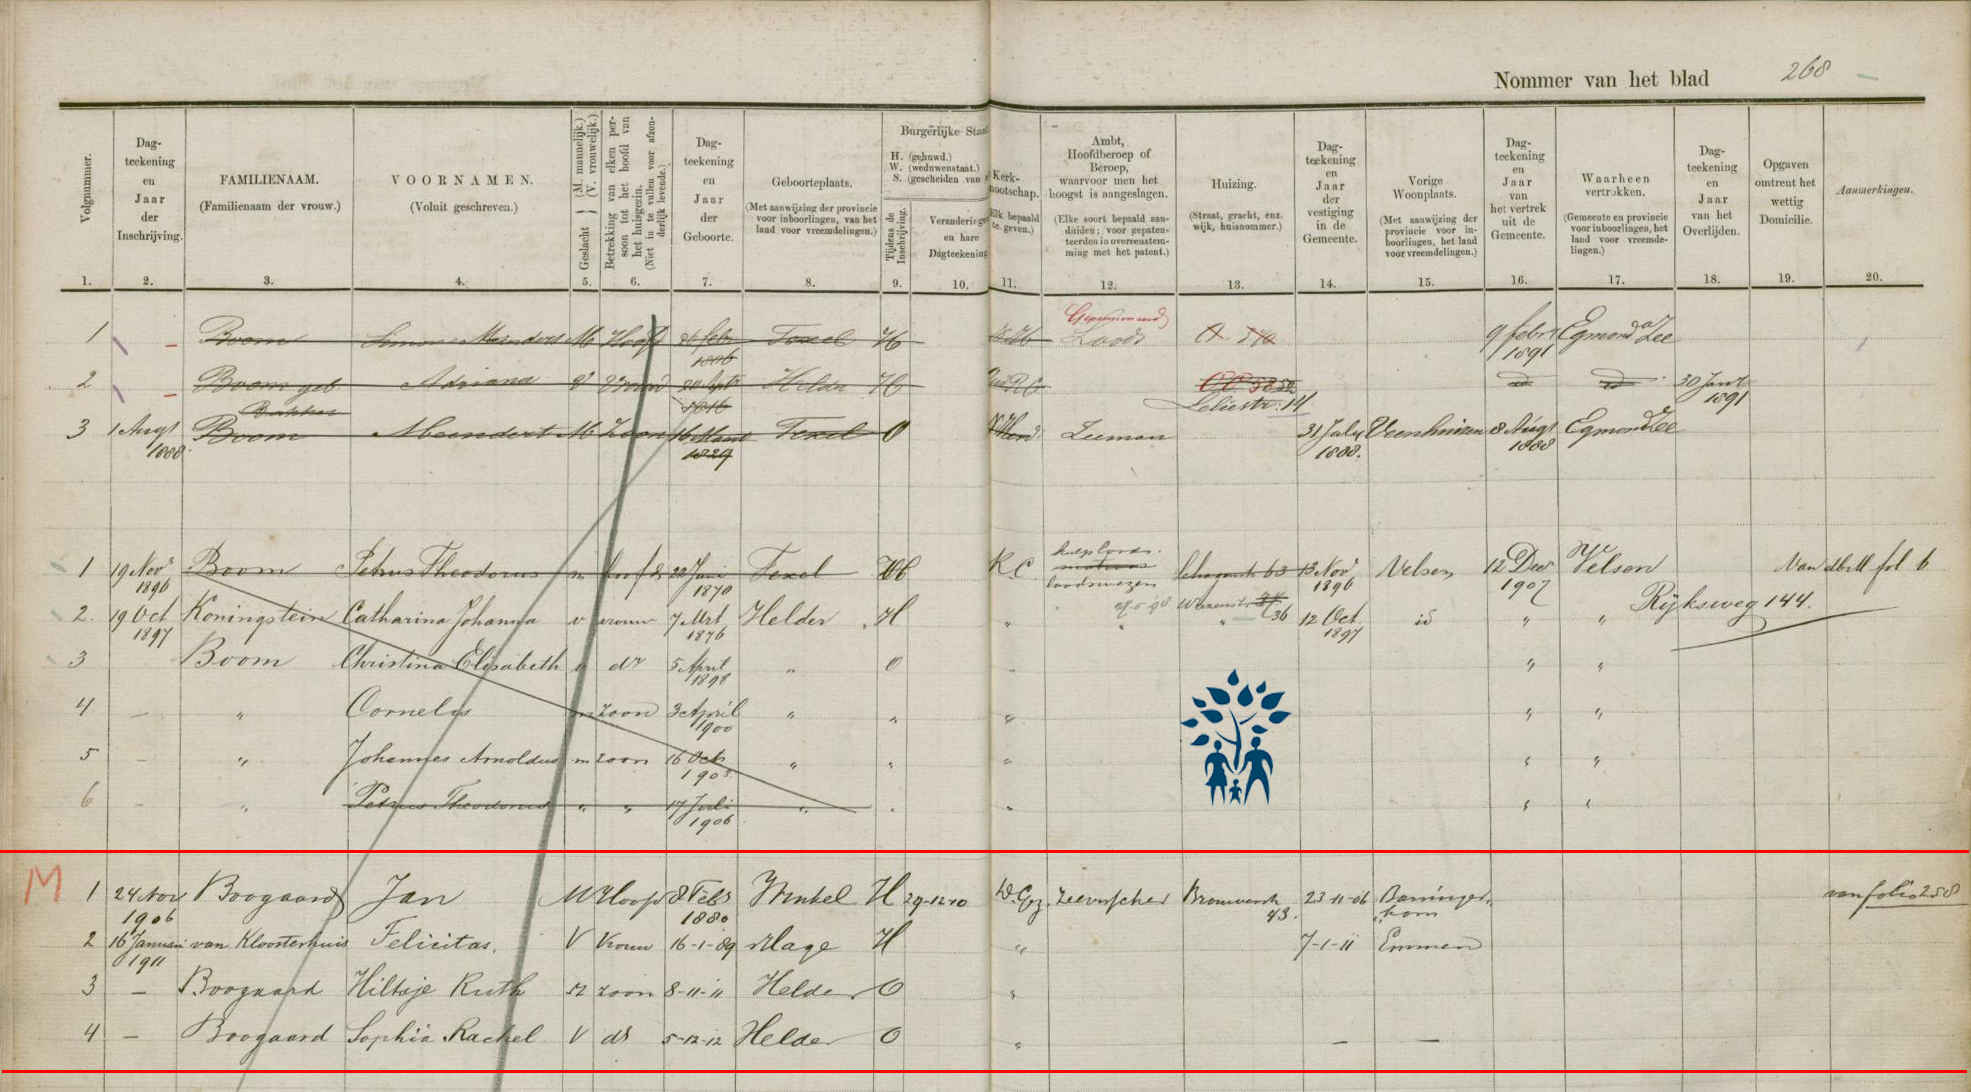 Nommer van het blad 268
Volgnummer.
Dag-
teekening
en
Jaar
der
Inschrijving.
FAMILIENAAM.
(Familienaam der vrouw.)
VOORNAMEN.
(Voluit geschreven.)
Geslacht (M. mannelijk.) (V. vrouwelijk.)
Betrekking van elken per-
soon tot het hoofd van
het huisgezin.
(Niet in te vullen voor afzon-
derlijk levende.)
Dag-
teekening
en
Jaar
der
Geboorte.
Geboorteplaats.
(Met aanwijzing der provincie
voor inboorlingen, van het
land voor vreemdelingen.)
Burgerlijke Staat
H. (gehuwd.)
W. (weduwenstaat.)
S. (gescheiden van
Tijdens de
Inschrijving.
en hare
Dagteekening
Kerk-
nootschap.
Ambt,
Hoofdberoep of
Beroep,
waarvoor men het
hoogst is aangeslagen.
(Elke soort bepaald aan-
duiden; voor gepaten-
teerden in overeenstem-
ming met het patent.)
Huizing.
(Straat, gracht, enz.
wijk, huisnommer.)
Dag-
teekening
en
Jaar
der
vestiging
in de
Gemeente.
Vorige
Woonplaats.
(Met aanwijzing der
provincie voor in-
boorlingen, het land
voor vreemdelingen.)
Dag-
teekening
en
Jaar
van
het vertrek
uit de
Gemeente.
Waarheen
vertrokken.
(Gemeente en provincie
voor inboorlingen, het
land voor vreemde-
lingen.)
Dag-
teekening
en
Jaar
van het
Overlijden.
Opgaven
omtrent het
wettig
Domicilie.
Aanmerkingen.
1. 2. 3. 4. 5. 6. 7. 8. 9. 10. 11. 12. 13. 14. 15. 16. 17. 18. 19. 20.
Gepensioneerd
1 Boom Simon Meinderts M Hoofd 26 febr Texel H Loods 9 febr Egmond a/Zee
1891
2 Boom geb Adriana V Vrouw Helder H 30 Jan
Bakker 1891
Leliestr. 14
3 1 Augt Boom Meindert M Zoon Texel O Zeeman 31 July Veenhuizen 8 Augt Egmond a/Zee
1888 1829 1888. 1888
hulploods.
matroos
loodswezen
1 19 Nov Boom Petrus Theodorus m hoofd 22 Juni Texel R.C. 63 13 Nov Velsen 12 Dec Velsen Van fol 6
1896 1870 1896 1907
Rijksweg 144.
2. 19 Oct Koningstein Catharina Johanna v vrouw 7 Mrt Helder H " " 36 12 Oct id " "
1897 1876 1897
3 Boom Christina Elisabeth v dr 5 April " O " " "
1898
4 — " Cornelis m zoon 3 April " " " " "
1900
5 — " Johannes Arnoldus m zoon 16 Oct " " " " "
6 — " Petrus Theodorus " " 17 Juli " " " " "
1906
M 1 24 Nov Boogaard Jan M Hoofd 8 Febr Winkel H 29-12-10 D.Gez Zeevisscher 23-11-06 van folio 258
1906 1880 43.
2 16 Januari van Kloosterhuis Felicitas. V Vrouw 16-1-89 H " 7-1-11 Emmen
1911
3 — Boogaard Hiltje Ruth M zoon 8-11-11 Helder O "
4 — Boogaard Sophia Rachel V dr 5-12-12 Helder O " — —